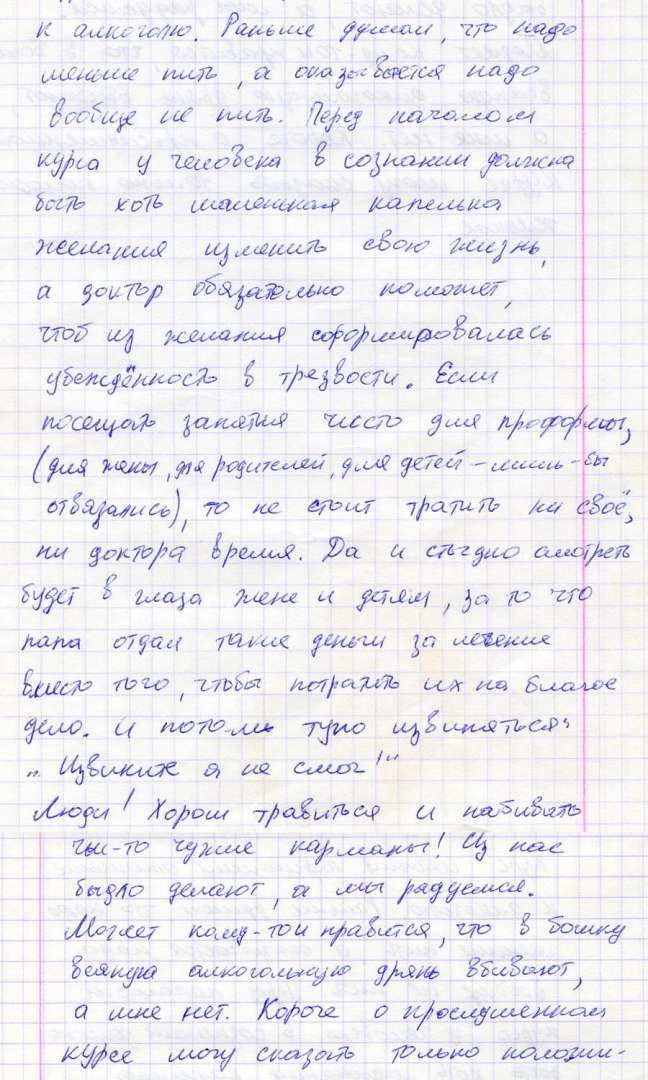 к алкоголю. Раньше думал, что надо
меньше пить, а оказывается надо
вообще не пить. Перед началом
курса у человека в сознании должна
быть хоть маленькая капелька
желания изменить свою жизнь,
а доктор обязательно поможет,
чтоб из желания сформировалась
убеждённость в трезвости. Если
посещать занятия чисто для проформы,
(для жены, для родителей, для детей – лишь-бы
отвязались), то не стоит тратить ни своё,
ни доктора время. Да и стыдно смотреть
будет в глаза жене и детям, за то что
папа отдал такие деньги за лечение
вместо того, чтобы потратить их на благое
дело. И потом тупо извиняться:
„Извините я не смог!"
Люди! Хорош травиться и набивать
чьи-то чужие карманы! Из нас
быдло делают, а мы радуемся.
Может кому-то и нравится, что в бошку
всякую алкогольную дрянь вбивают,
а мне нет. Короче о прослушенном
курсе могу сказать только положи-